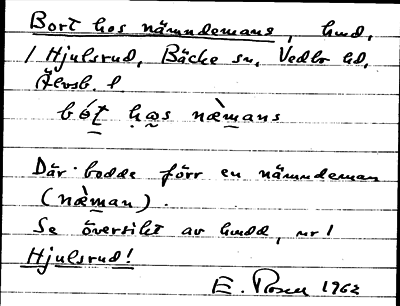 Bort hos nämndemans, hmd,
/ Hjulsrud, Bäcke sn, Vedbo hd,
Älvsb. l
bót hǫs næ̀mans
Där bodde förr en nämndeman
(næ̀man).
Se översikt av hmdd, nr 1
Hjulsrud!
E. Rosen 1962